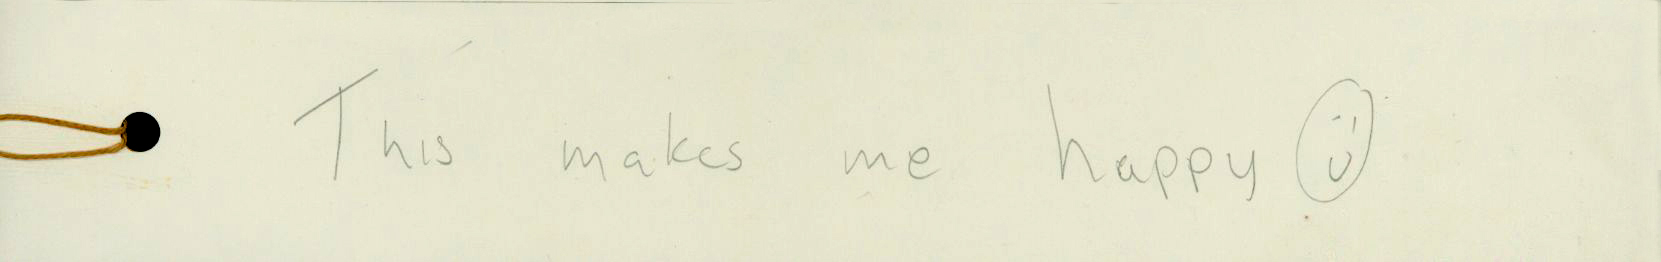 This makes me happy